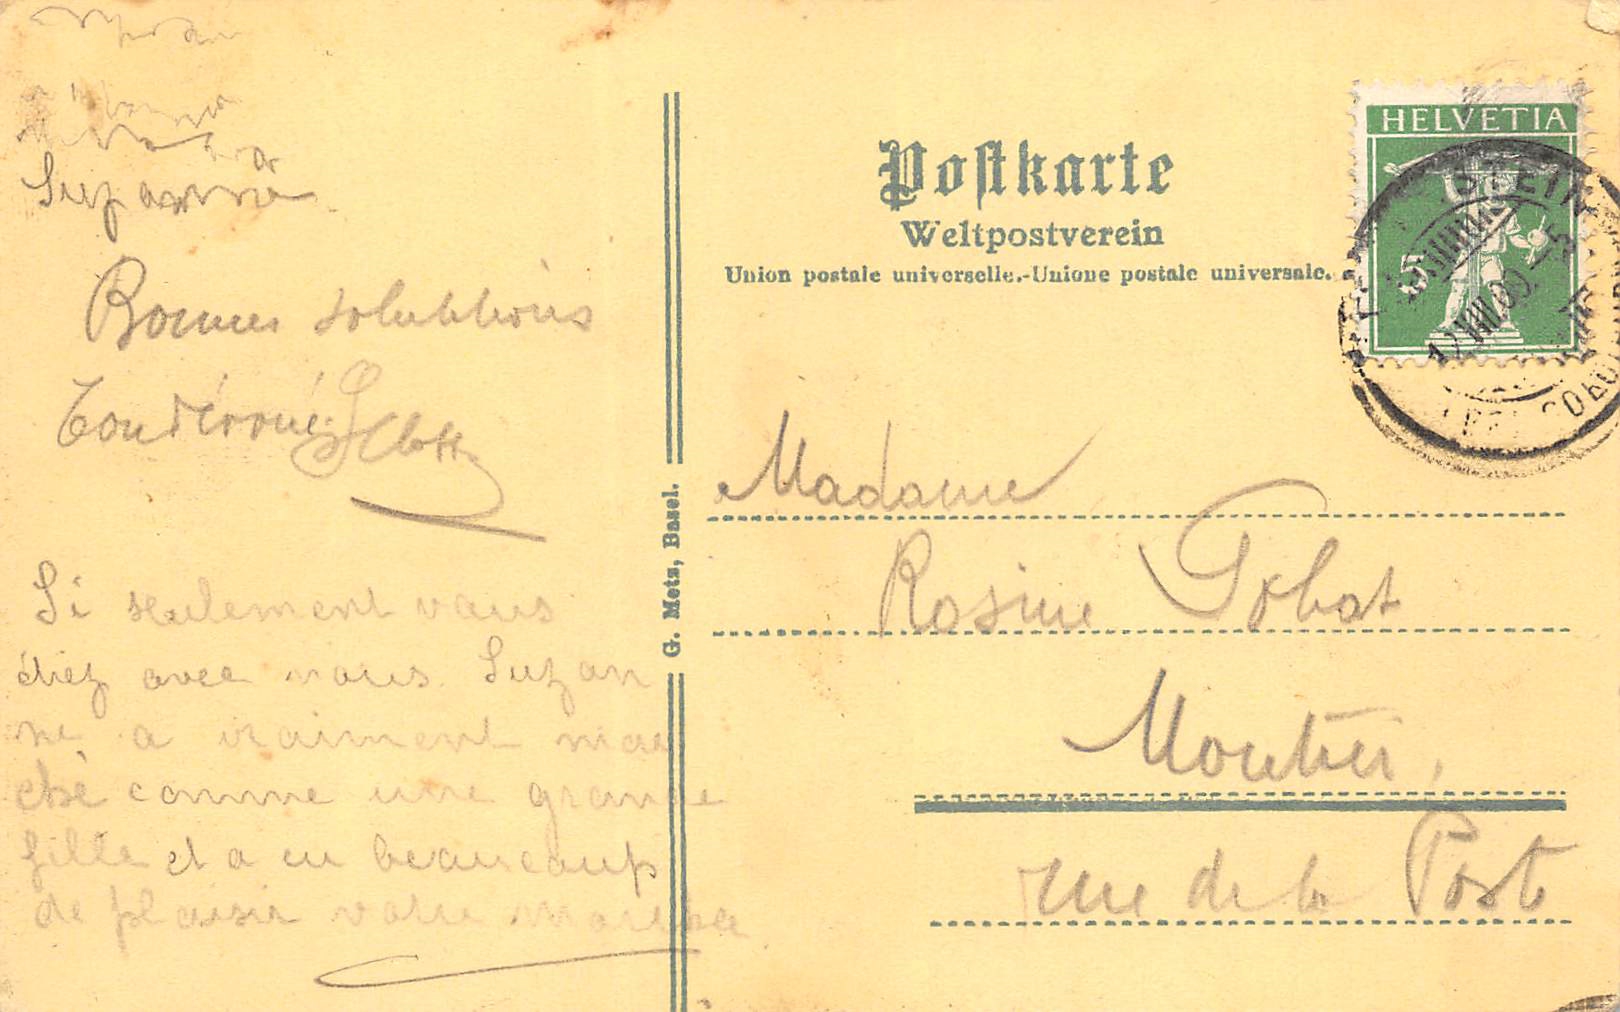 Suzanne
Bonnes salutations
Si seulement vous
étiez avec nous. Suzan
ne a vraiment mar
ché comme une grande
fille et a eu beaucoup
de plaisir votre Martha
G. Metz, Basel.
Postkarte
Weltpostverein
Union postale universelle.-Unione postale universale.
HELVETIA
STEIN
12.VIII.09.-5
Madame
Rosine Gobat
Moutier,
rue de la Poste